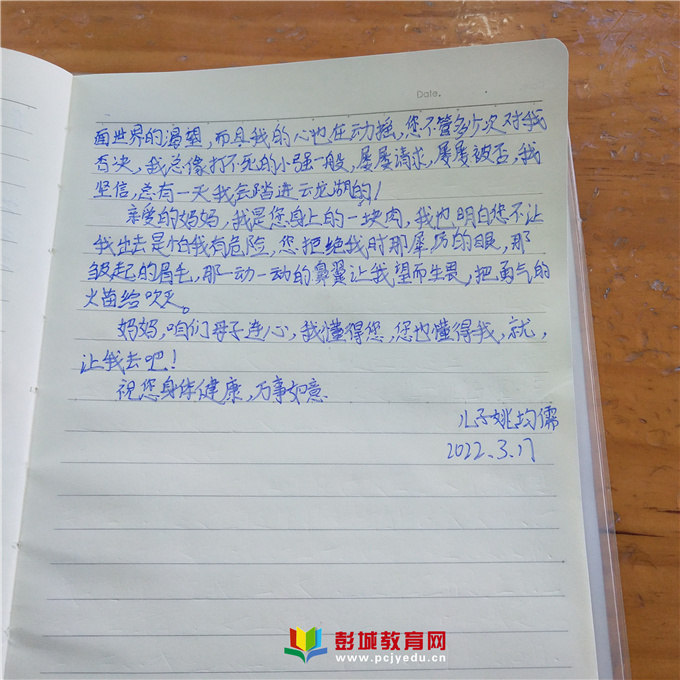 Date.
面世界的渴望，而且我的心也在动摇，您不管多少次对我
否决，我总像打不死的小强一般，屡屡请求，屡屡被否，我
坚信，总有一天我会踏进云龙湖的！
亲爱的妈妈，我是您身上的一块肉，我也明白您不让
我出去是怕我有危险，您拒绝我时那犀历的眼，那
皱起的眉毛，那一动一动的鼻翼让我望而生畏，把勇气的
火苗给吹灭。
妈妈，咱们母子连心，我懂得您，您也懂得我，就，
让我去吧！
祝您身体健康，万事如意
儿子姚均儒
2022.3.17
彭城教育网
www.pcjyedu.cn